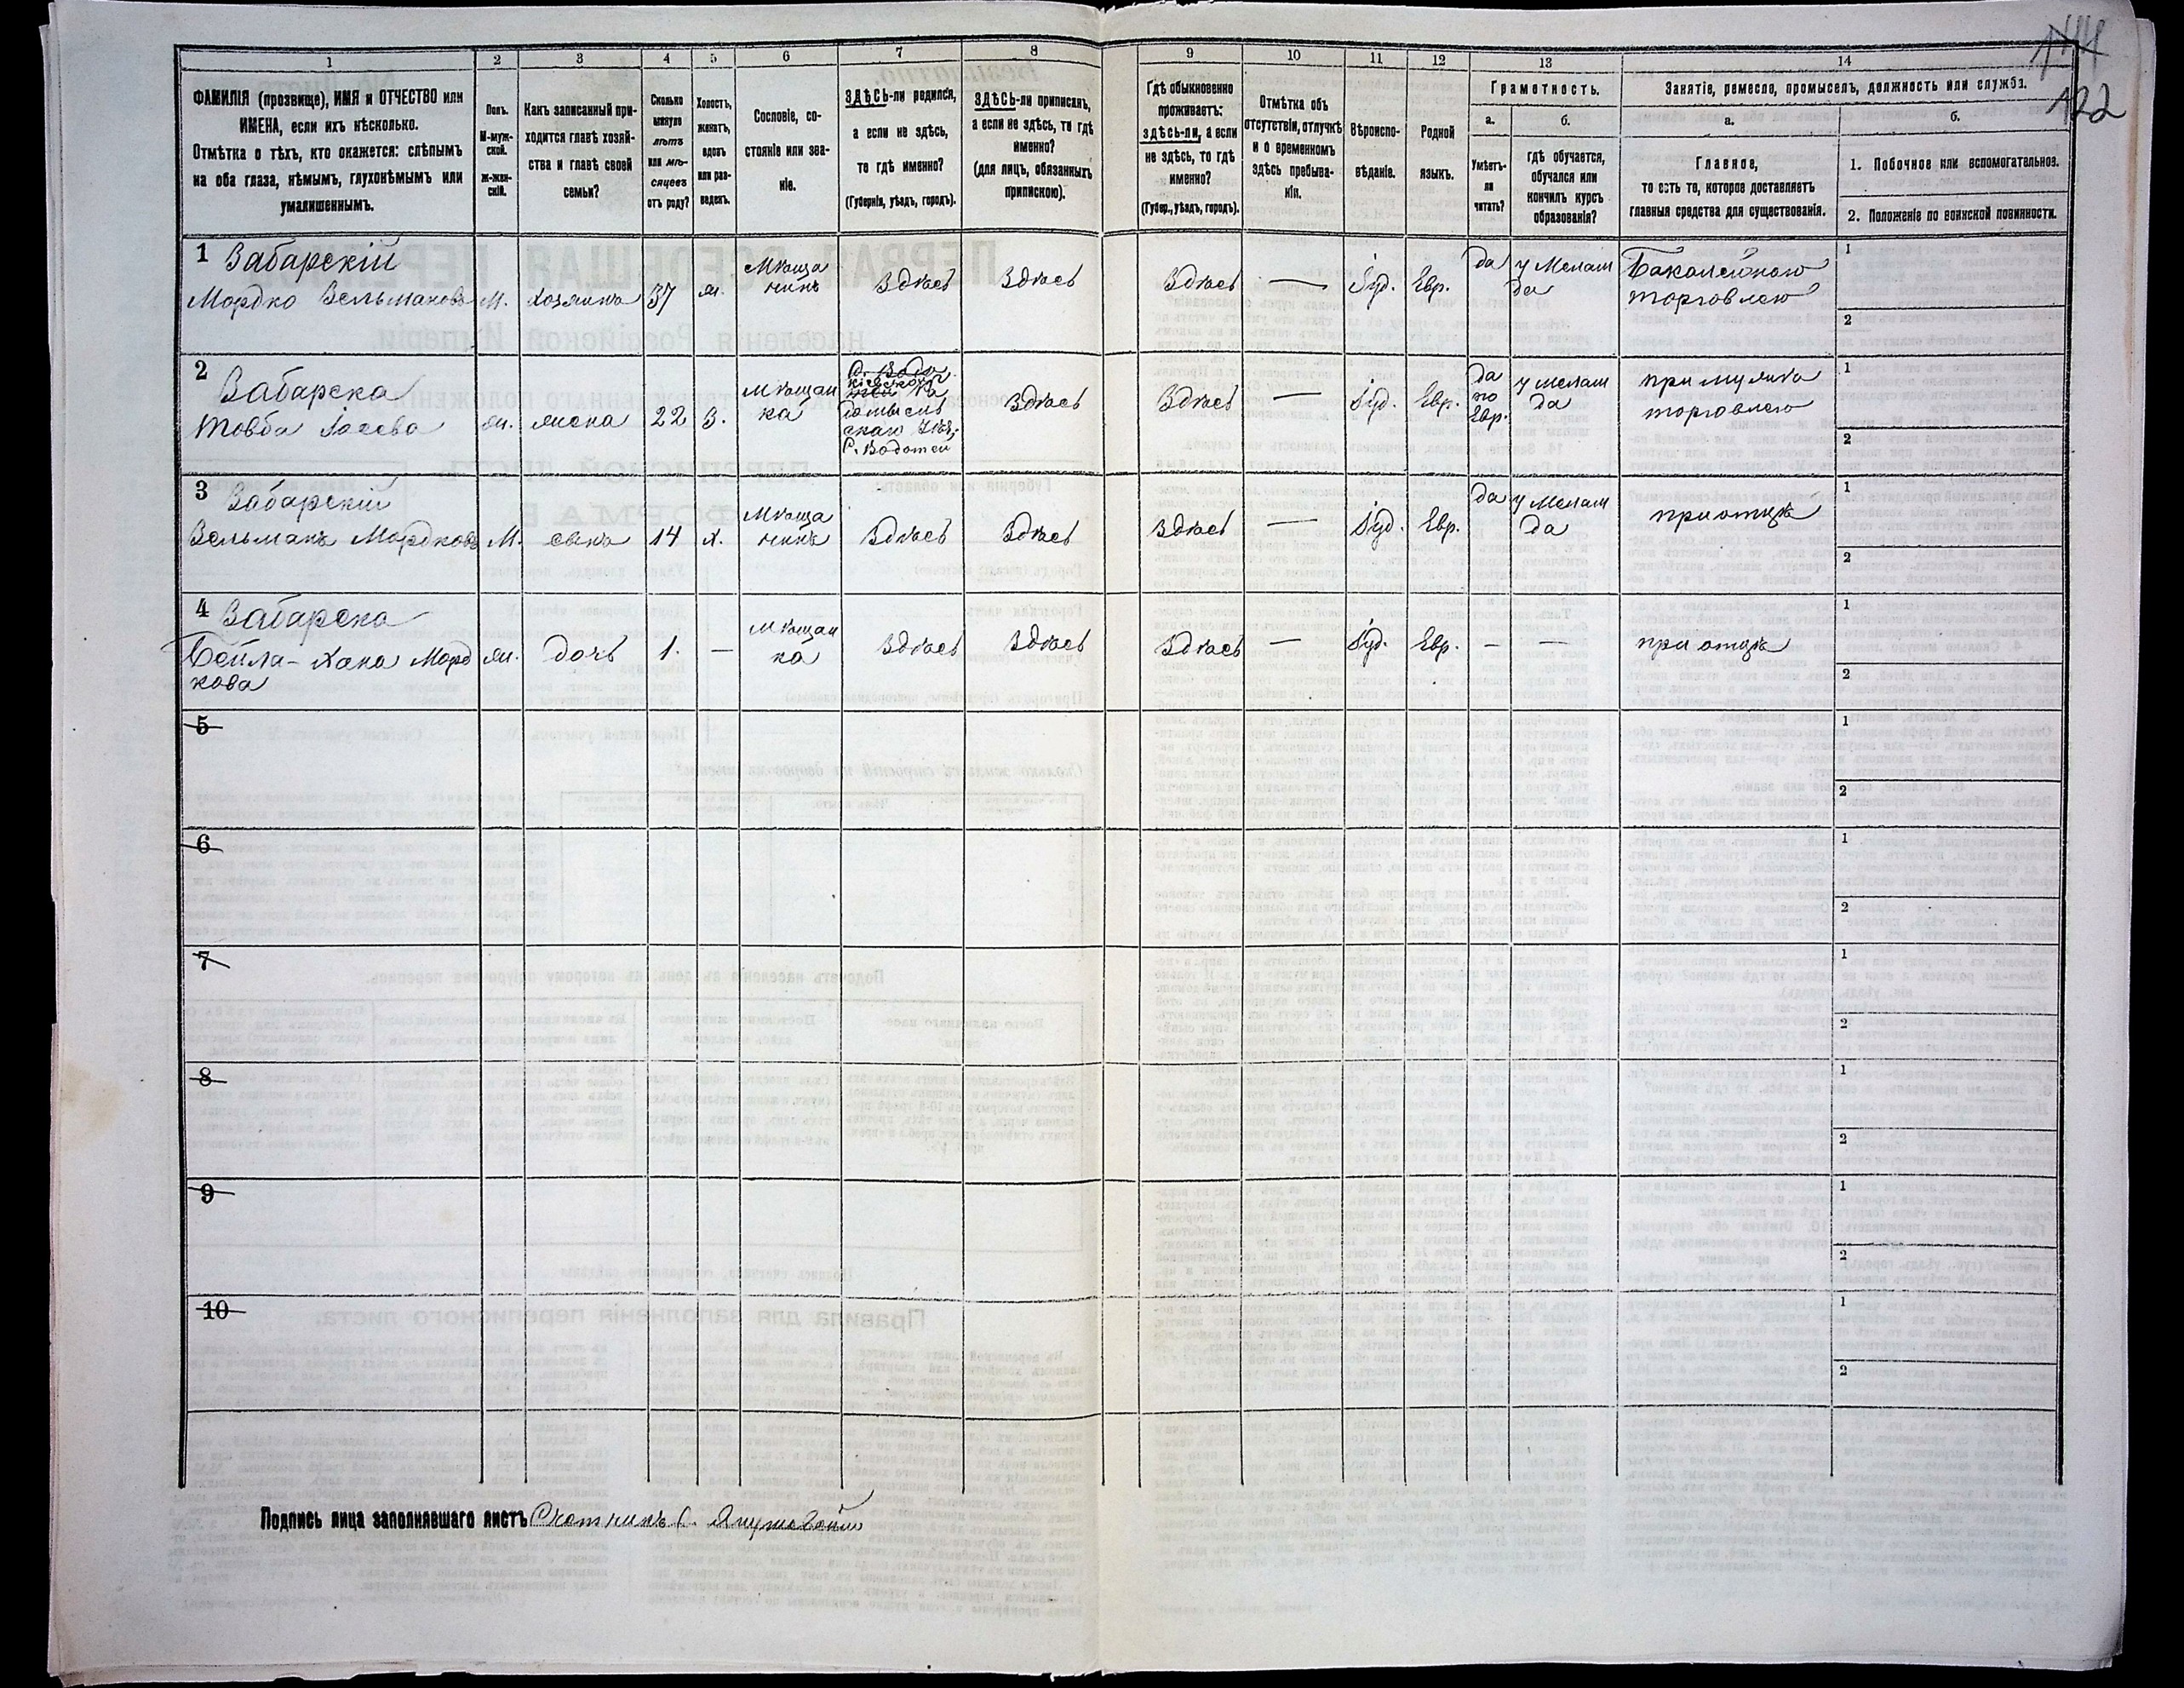 144
122
1
2
3
4
5
6
7
8
9
10
11
12
13
14
ФАМИЛІЯ (прозвище), ИМЯ и ОТЧЕСТВО или
ИМЕНА, если ихъ нѣсколько.
Отмѣтка о тѣхъ, кто окажется: слѣпымъ
на оба глаза, нѣмымъ, глухонѣмымъ или
умалишеннымъ.
Полъ.
М-муж-
ской.
ж-жен-
скій.
Какъ записанный при-
ходится главѣ хозяй-
ства и главѣ своей
семьи?
Сколько
минуло
лѣтъ
или мѣ-
сяцевъ
отъ роду?
Холостъ,
женатъ,
вдовъ
или раз-
веденъ.
Сословіе, со-
стояніе или зва-
ніе.
ЗДѢСЬ-ли родился,
а если не здѣсь,
то гдѣ именно?
(Губернія, уѣздъ, городъ).
ЗДѢСЬ-ли приписанъ,
а если не здѣсь, то гдѣ
именно?
(для лицъ, обязанныхъ
припискою).
Гдѣ обыкновенно
проживаетъ:
здѣсь-ли, а если
не здѣсь, то гдѣ
именно?
(Губер., уѣздъ, городъ).
Отмѣтка объ
отсутствіи, отлучкѣ
и о временномъ
здѣсь пребыва-
ніи.
Вѣроиспо-
вѣданіе.
Родной
языкъ.
Грамотность.
а.
Умѣетъ-
ли
читать?
б.
гдѣ обучается,
обучался или
кончилъ курсъ
образованія?
Занятіе, ремесло, промыселъ, должность или служба.
а.
Главное,
то есть то, которое доставляетъ
главныя средства для существованія.
б.
1. Побочное или вспомогательное.
2. Положеніе по воинской повинности.
1 Забарскій
Мордко Зельмановъ М. хозяинъ 37 ж. Мѣща
нинъ Здѣсь Здѣсь Здѣсь — Іуд. Евр. да у Мелам
да Бакалейною
торговлею
1
2
2 Забарска
Товба Іосева ж. жена 22 З. Мѣщан
ка
С. Водотеи
Здѣсь Здѣсь — Іуд. Евр. да
по
Евр. у мелам
да при мужѣ
торговлею
1
2
3 Забарскій
Зельманъ Мордковъ М. сынъ 14 х. Мѣща
нинъ Здѣсь Здѣсь Здѣсь — Іуд. Евр. да у Мелам
да при отцѣ
1
2
4 Забарска
Бейла-Хана Морд
кова ж. дочь 1. — Мѣщан
ка Здѣсь Здѣсь Здѣсь — Іуд. Евр. — — при отцѣ
1
2
5
1
2
6
1
2
7
1
2
8
1
2
9
1
2
10
1
2
Подпись лица заполнявшаго листъ